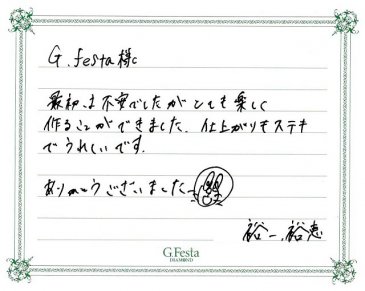 G.festa様に
最初は不安でしたがとても楽しく
作ることができました。仕上がりもステキ
でうれしいです。
ありがとうございました
裕一、裕恵
G.Festa
DIAMOND